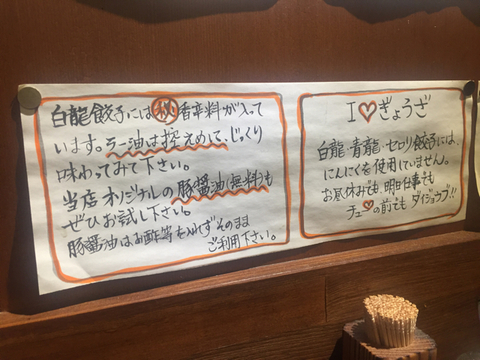 白龍餃子には㊙香辛料が入って
います。ラー油は控えめで、じっくり
味わってみて下さい。
当店オリジナルの豚醤油(無料)も
ぜひお試し下さい。
豚醤油はお酢等を入れずそのまま
ご利用下さい。
I♡ぎょうざ
白龍・青龍・セロリ餃子には、
にんにくを使用していません。
お昼休みも、明日仕事でも
チュ♡の前でも ダイジョウブ!!